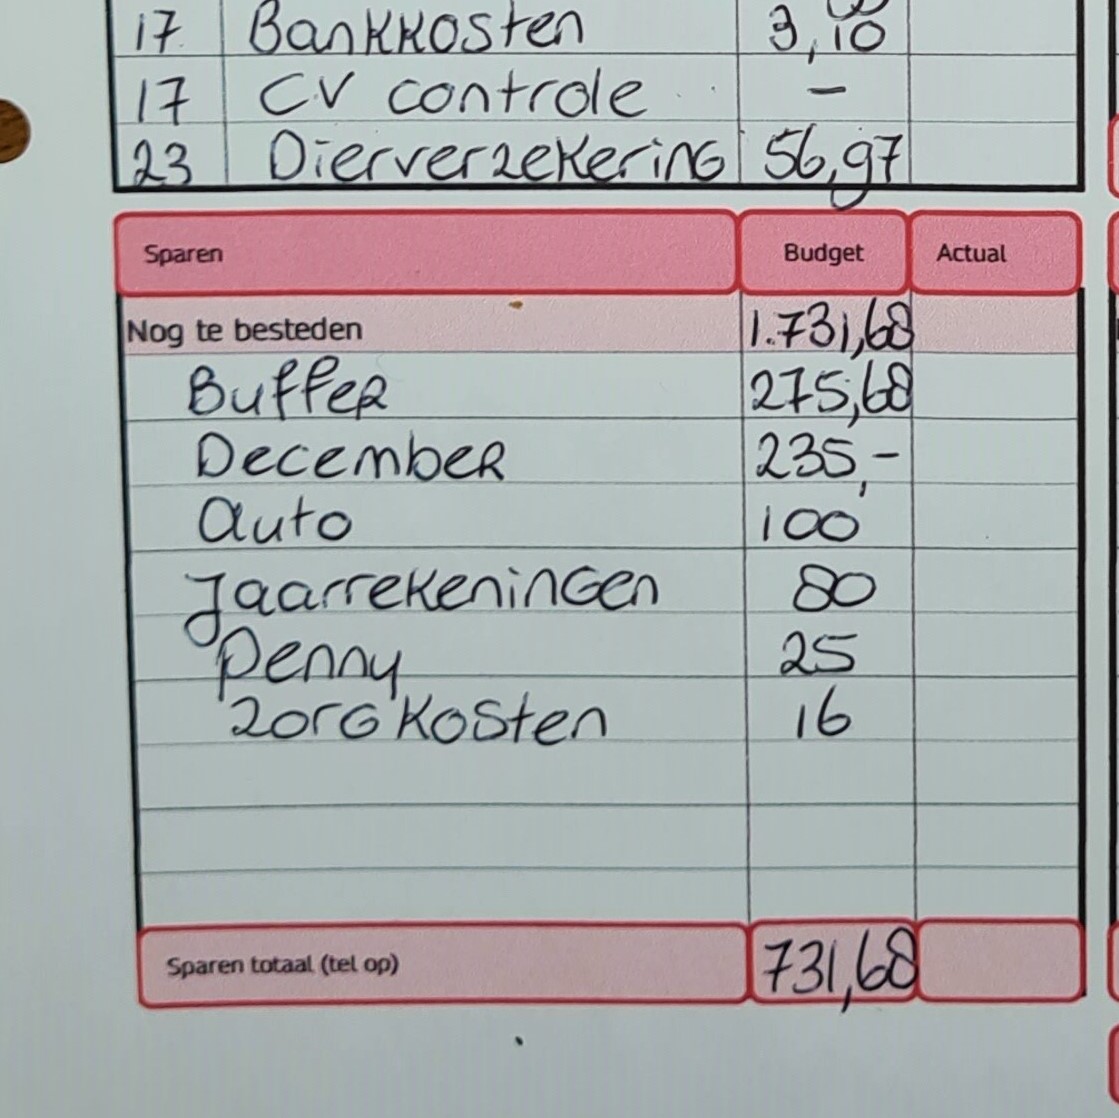 17 Bankkosten 3,10
17 CV controle -
23 Dierverzekering 56,97
Sparen Budget Actual
Nog te besteden 1.731,68
Buffer 275,68
December 235,-
auto 100
Jaarrekeningen 80
Penny 25
Zorgkosten 16
Sparen totaal (tel op) 731,68